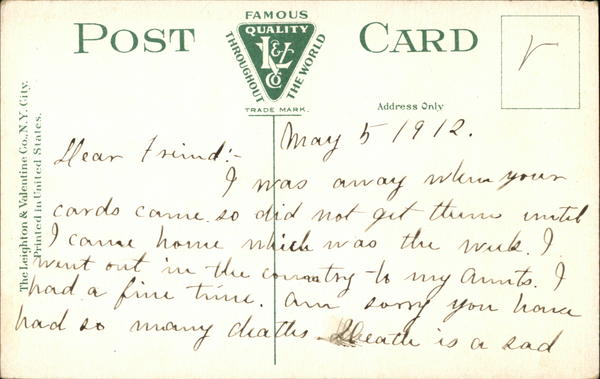 POST CARD
FAMOUS
QUALITY
L&V
CO
THROUGHOUT THE WORLD
TRADE MARK.
Address Only
The Leighton & Valentine Co., N.Y. City.
Printed in United States.
May 5 1912.
Dear Friend:-
I was away when your
cards came. so did not get them until
I came home which was the week. I
went out in the country to my Aunts. I
had a fine time. am sorry you have
had so many deaths. Death is a sad